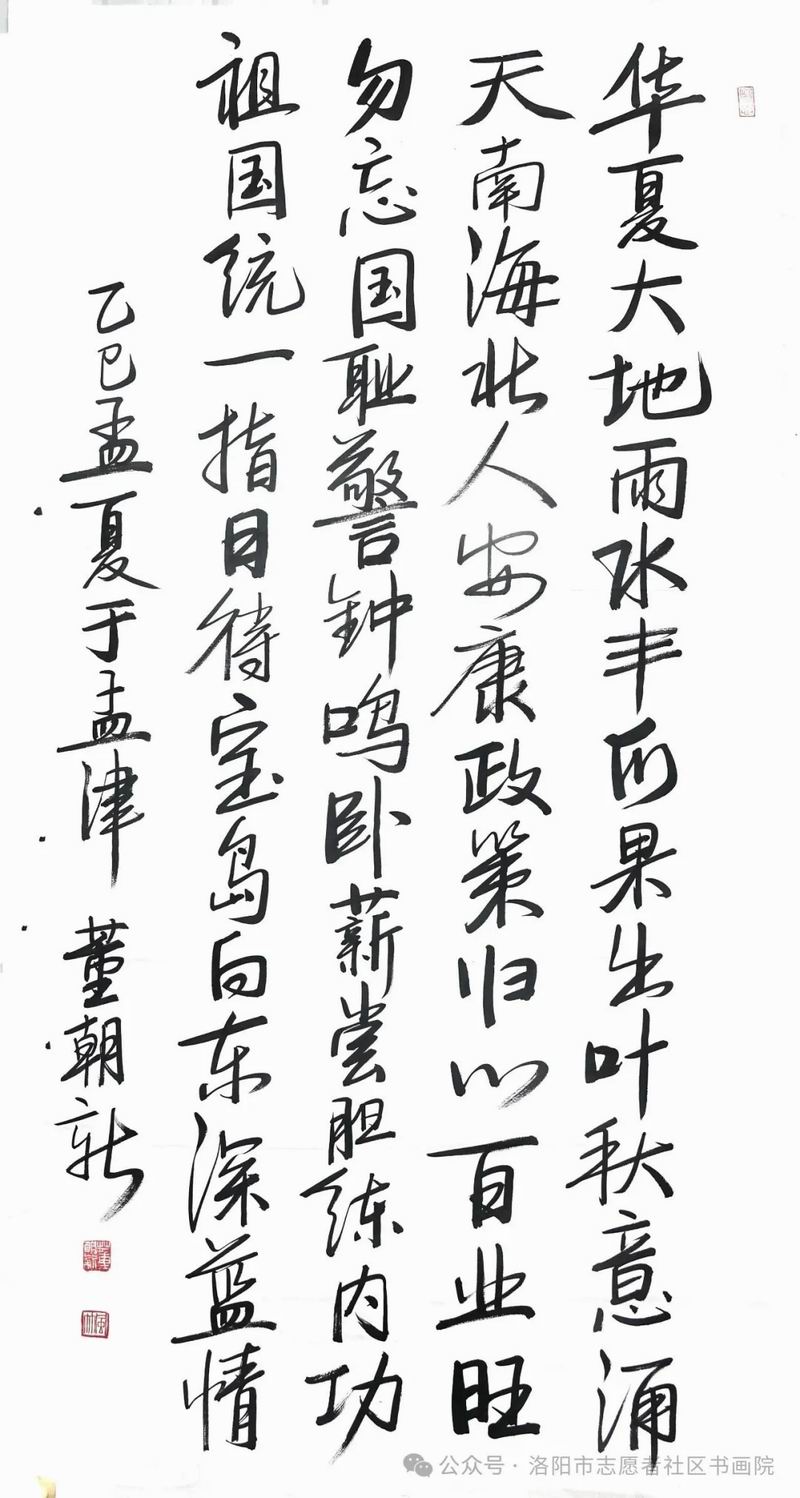 华夏大地雨水丰果出叶秋意涌
天南海北人安康政策归心百业旺
勿忘国耻警钟鸣卧薪尝胆练内功
祖国统一指日待宝岛向东深蓝情
乙巳孟夏于孟津 董朝新
公众号·洛阳市志愿者社区书画院